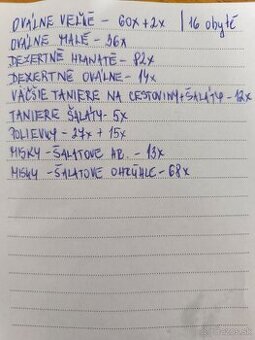 OVÁLNE VEĽKÉ - 60x + 2x | 16 obyté
OVÁLNE MALÉ - 36x
DEZERTNÉ HRANATÉ - 82x
DEZERTNÉ OVÁLNE - 14x
VÄČŠIE TANIERE NA CESTOVINY+ŠALÁTY - 12x
TANIERE ŠALÁTY - 5x
POLIEVKY - 27x + 15x
MISKY - ŠALATOVE HR. - 13x
MISKY - ŠALATOVE OKRÚHLE - 68x